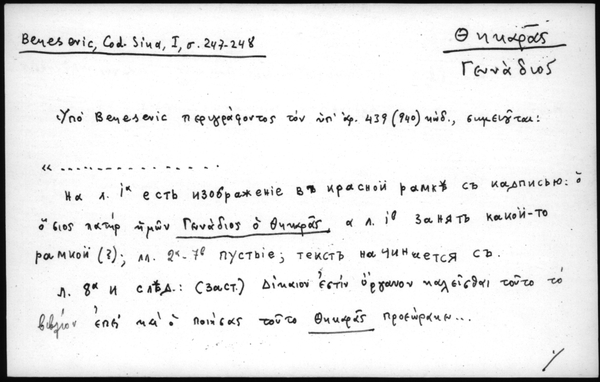 Benesevic, Cod. Sina, I, σ. 247-248
Θηκαρᾶς
Γεννάδιος
Ὑπό Benesevic περιγράφοντος τόν ὑπ' ἀρ. 439 (940) κώδ., σημειοῦται:
« . . . . . . . . . . . . . . .
На л. 1ᵃ есть изображенiе въ красной рамкѣ съ надписью: ὁ
ὅσιος πατήρ ἡμῶν Γενάδιος ὁ Θηκαρᾶς, а л. 1ᵇ занятъ какой-то
рамкой (?); лл. 2ᵃ-7ᵇ пустые; текстъ начинается съ.
л. 8ᵃ и слѣд.: (заст.) Δίκαιον ἐστίν ὄργανον καλεῖσθαι τοῦτο τό
βιβλίον ἐπεί καί ὁ ποιήσας τοῦτο Θηκαρᾶς προεώρακε...